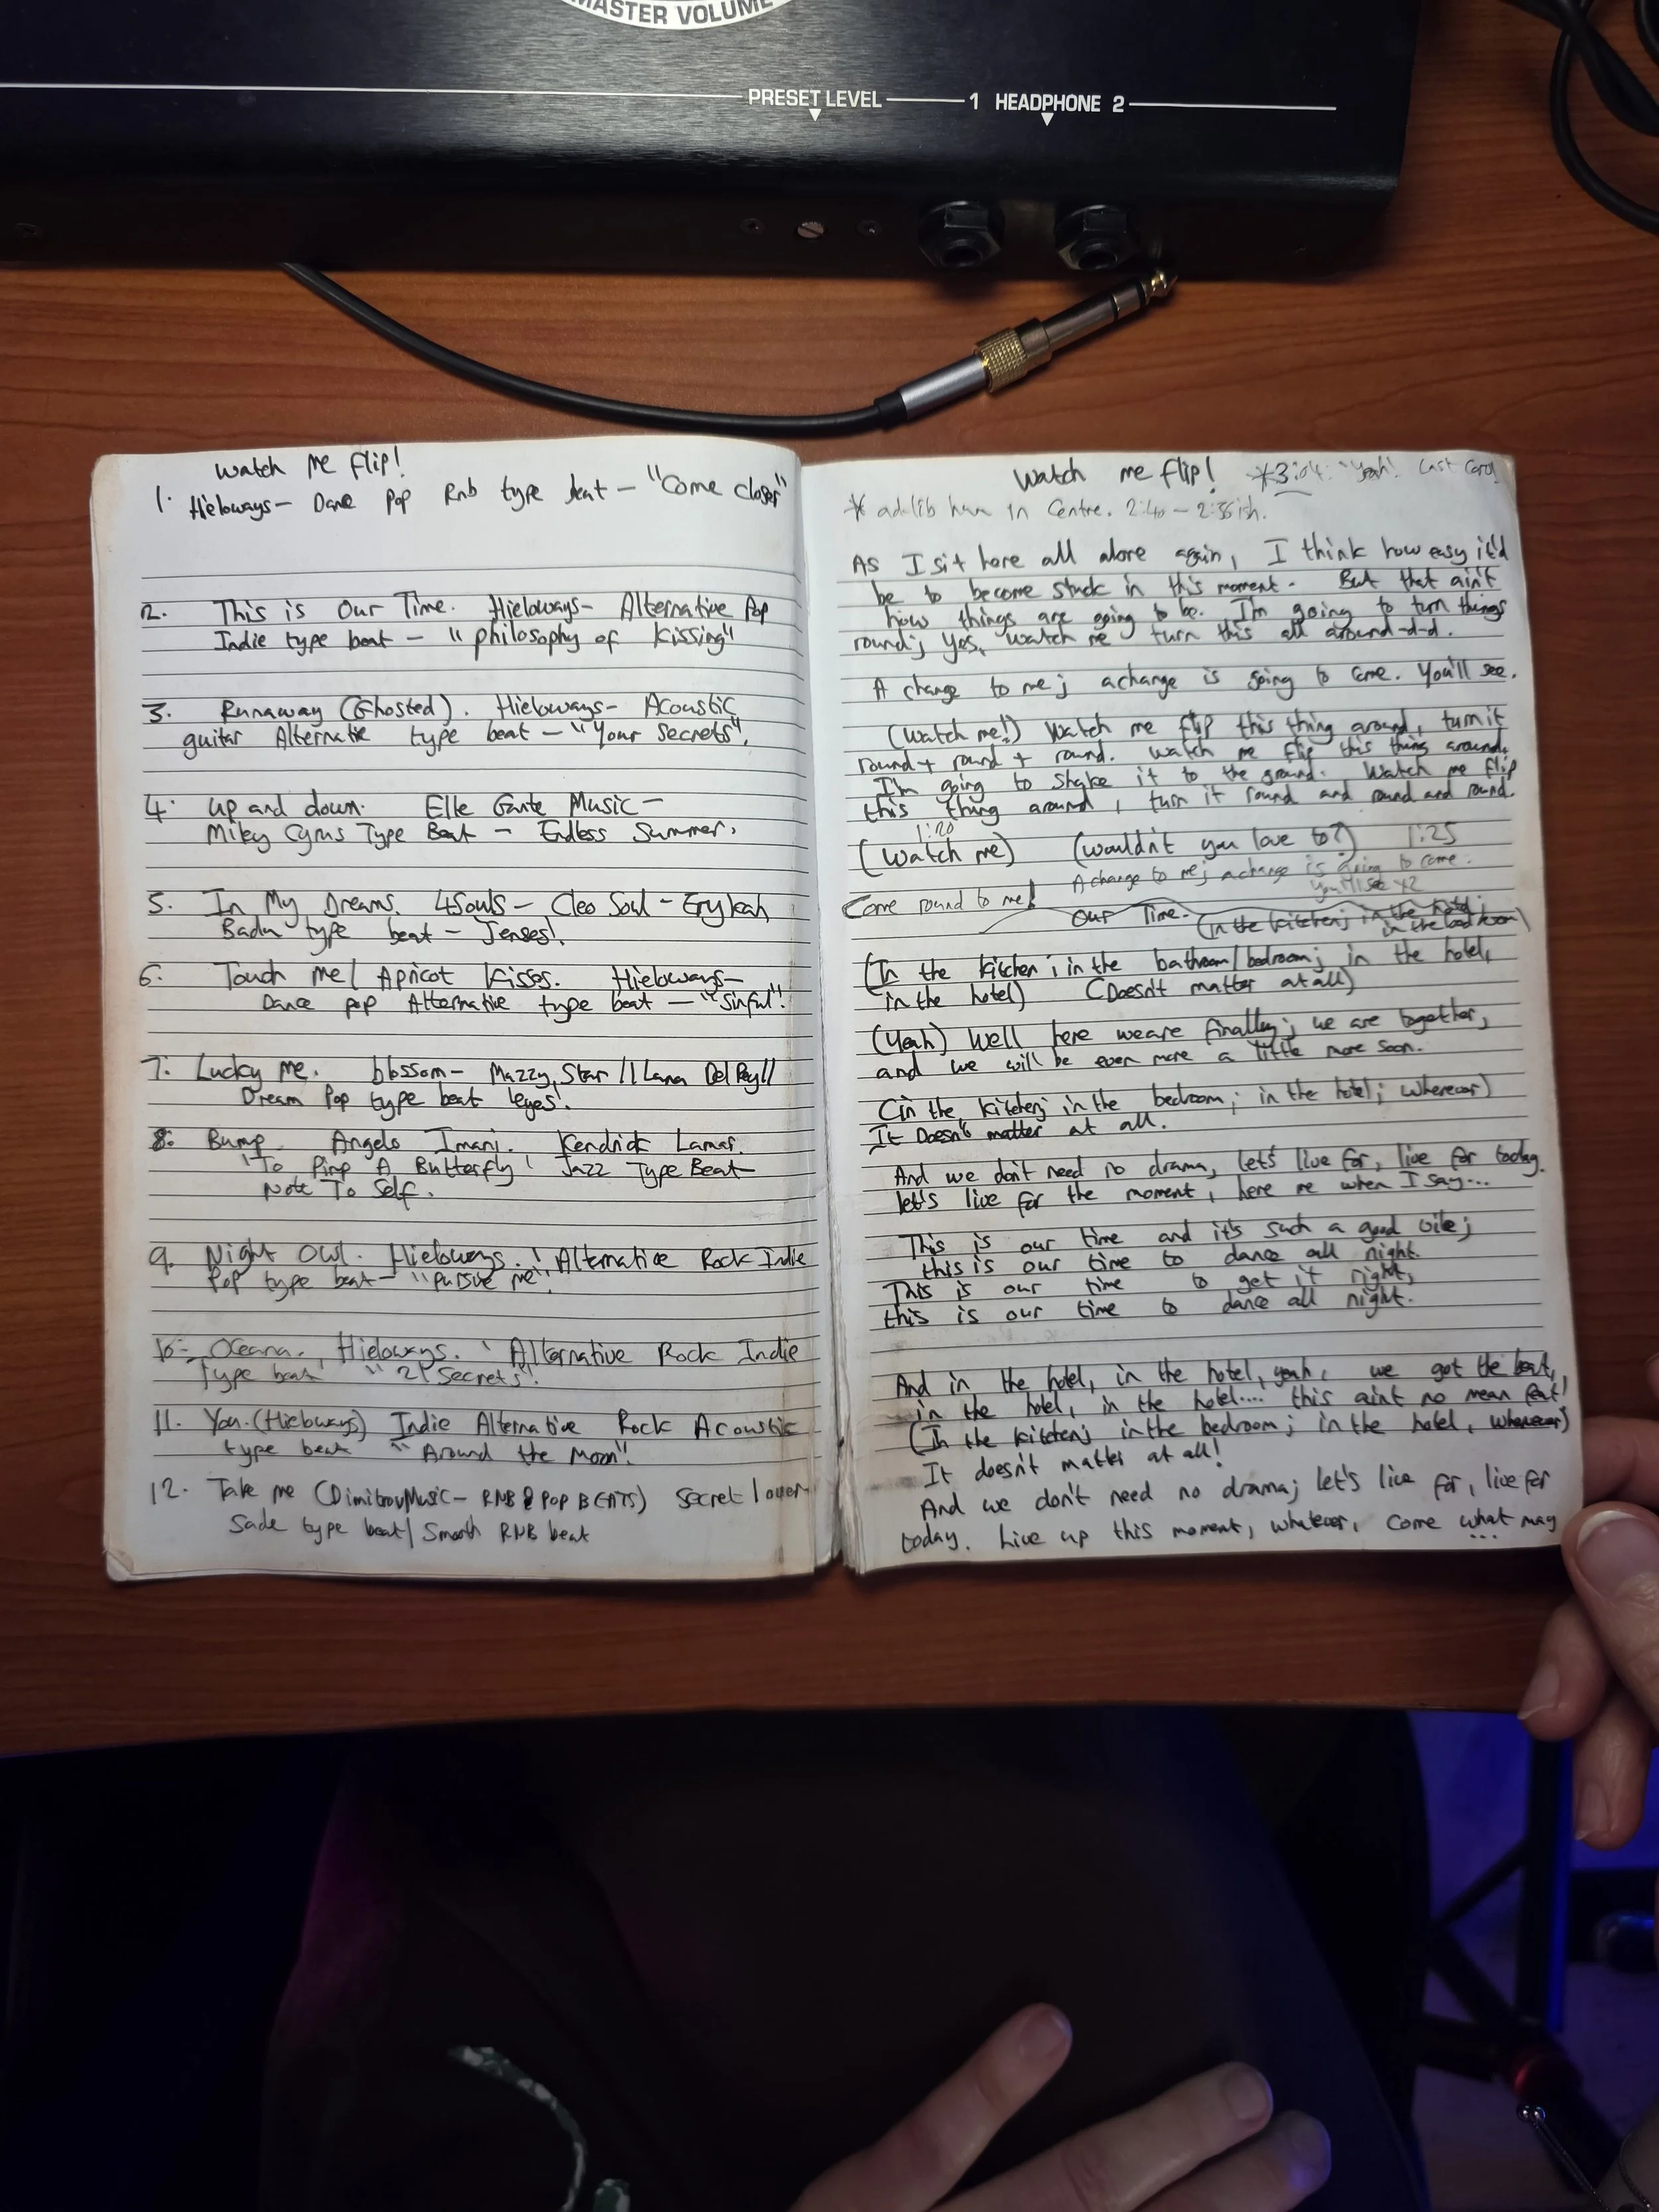 MASTER VOLUME
PRESET LEVEL 1 HEADPHONE 2
Watch me flip!
1. Hieloways - Dance Pop Rnb type beat - "Come closer"
2. This is Our Time. Hieloways - Alternative Pop
Indie type beat - "philosophy of kissing"
3. Runaway (Ghosted). Hieloways - Acoustic
guitar Alternatie type beat - "Your Secrets".
4. Up and down. Elle Gante Music -
Miley Cyrus Type Beat - Endless Summer.
5. In My Dreams. 4Souls - Cleo Soul - Erykah
Badu type beat - Jenses!
6. Touch me / Apricot Kisses. Hieloways -
Dance pop Alternative type beat - "Sinful"!
7. Lucky me. blossom - Mazzy Star // Lana Del Rey //
Dream Pop type beat 'eyes'.
8. Bump. Angelo Imani. Kendrick Lamar.
'To Pimp A Butterfly' Jazz Type Beat
Note To Self.
9. Night Owl. Hieloways. 'Alternative Rock Indie
Pop type beat - "pursue me".
10. Oceana. Hieloways. 'Alternative Rock Indie
Type beat "21 Secrets".
11. You. (Hieloways) Indie Alternative Rock Acoustic
type beat "Around the Moon".
12. Take me (DimitrovMusic - RNB & POP BEATS) Secret lover
Sade type beat / Smooth RNB beat
Watch me flip! *3:04: "Yeah! Last
* ad-lib hum in Centre. 2:40 - 2:56ish.
As I sit here all alone again, I think how easy it'd
be to become stuck in this moment. But that ain't
how things are going to be. I'm going to turn things
round; yes, watch me turn this all around-d-d.
A change to me; a change is going to come. You'll see.
(Watch me!) Watch me flip this thing around, turn it
round + round + round. Watch me flip this thing around,
I'm going to shake it to the ground. Watch me flip
this thing around, turn it round and round and round.
1:20
(Watch me) (wouldn't you love to?) 1:25
A change to me; a change is going to come.
You'll see x2
Come round to me!
Our Time. (In the kitchen; in the hotel;
in the bedroom)
(In the kitchen; in the bathroom/bedroom; in the hotel,
in the hotel) (Doesn't matter at all)
(Yeah) Well here we are finally; we are together,
and we will be even more a little more soon.
(in the kitchen; in the bedroom; in the hotel; wherever)
It Doesn't matter at all.
And we don't need no drama, let's live for, live for today.
let's live for the moment, here me when I say...
This is our time and it's such a good vibe;
this is our time to dance all night.
This is our time to get it right,
this is our time to dance all night.
And in the hotel, in the hotel, yeah, we got the beat,
in the hotel, in the hotel.... this aint no mean feat!
(In the kitchen; in the bedroom; in the hotel, wherever)
It doesn't matter at all!
And we don't need no drama; let's live for, live for
today. Live up this moment, whatever, come what may
...